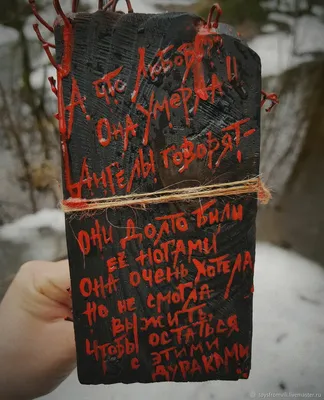 А что Любовь?
Она умерла!!
Ангелы говорят-
они долго били
её ногами
она очень хотела
но не смогла
выжить,
чтобы остаться
с этими
дураками.